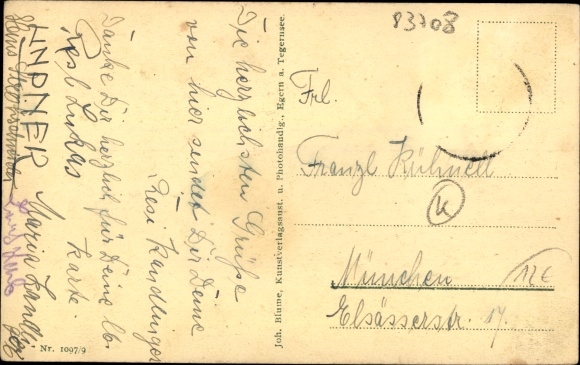 83708
Die herzlichsten Grüße
von hier sendet Dir Deine
Resi Kandlinger
Danke Dir herzlich für Deine lb.
Karte.
Resl Lukas
LINDNER
Maria
Nr. 1097/9
Joh. Blume, Kunstverlagsanst. u. Photohandlg., Egern a. Tegernsee.
Frl.
Franzl Kühnell
K
München
12 €
Elsässerstr. 17.